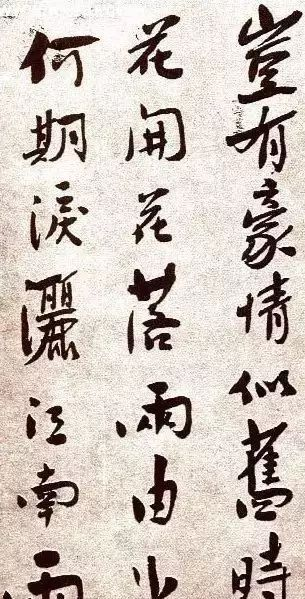 豈有豪情似舊時
花開花落兩由之
何期淚灑江南雨